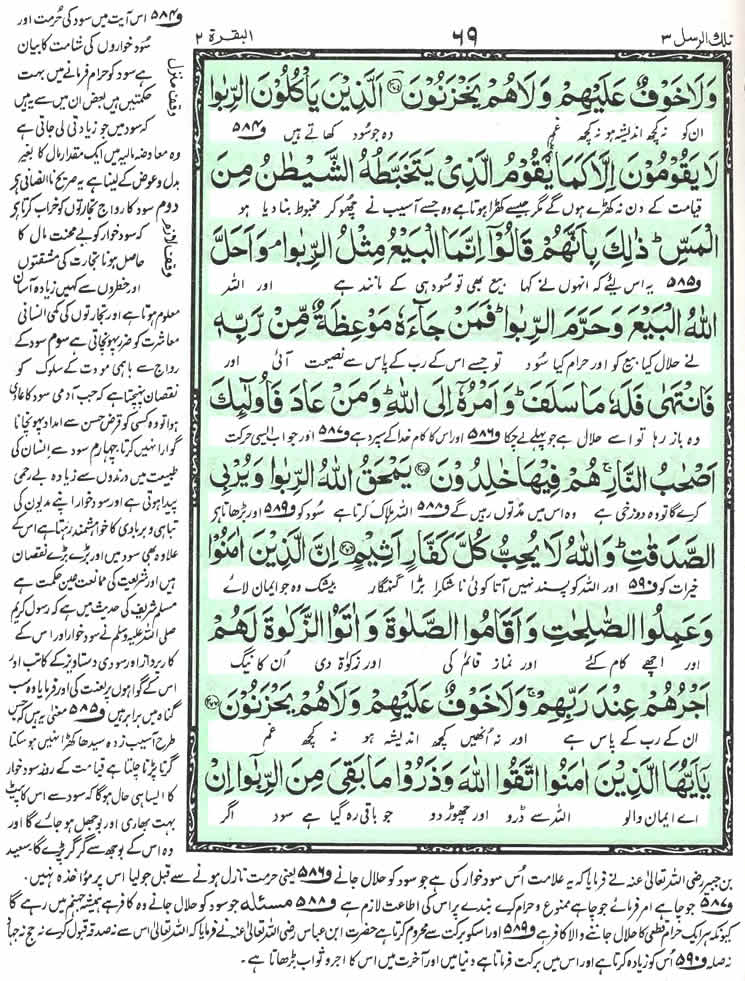 تلك الرسل ۳
۶۹
البقرة ۲
وَلَا خَوْفٌ عَلَيْهِمْ وَلَا هُمْ يَحْزَنُوْنَ ﴿۲۷۴﴾ اَلَّذِيْنَ يَاْكُلُوْنَ الرِّبٰوا
ان کو نہ کچھ اندیشہ ہو نہ کچھ غم وہ جو سُود کھاتے ہیں ف۵۸۴
لَا يَقُوْمُوْنَ اِلَّا كَمَا يَقُوْمُ الَّذِيْ يَتَخَبَّطُهُ الشَّيْطٰنُ مِنَ
قیامت کے دن نہ کھڑے ہوں گے مگر جیسے کھڑا ہوتا ہے وہ جسے آسیب نے چھو کر مخبوط بنا دیا ہو
الْمَسِّ ؕ ذٰلِكَ بِاَنَّهُمْ قَالُوْۤا اِنَّمَا الْبَيْعُ مِثْلُ الرِّبٰوا ۘ وَاَحَلَّ
ف۵۸۵ یہ اس لئے کہ انہوں نے کہا بیع بھی تو سُود ہی کے مانند ہے اور اللہ
اللّٰهُ الْبَيْعَ وَحَرَّمَ الرِّبٰوا ؕ فَمَنْ جَآءَهٗ مَوْعِظَةٌ مِّنْ رَّبِّهٖ
نے حلال کیا بیع کو اور حرام کیا سُود تو جسے اس کے رب کے پاس سے نصیحت آئی اور
فَانْتَهٰى فَلَهٗ مَا سَلَفَ ؕ وَاَمْرُهٗۤ اِلَى اللّٰهِ ؕ وَمَنْ عَادَ فَاُولٰٓئِكَ
وہ باز رہا تو اسے حلال ہے جو پہلے لے چکا ف۵۸۶ اور اس کا کام خدا کے سپرد ہے ف۵۸۷ اور جو اب ایسی حرکت
اَصْحٰبُ النَّارِ ۚ هُمْ فِيْهَا خٰلِدُوْنَ ﴿۲۷۵﴾ يَمْحَقُ اللّٰهُ الرِّبٰوا وَيُرْبِى
کرے گا تو وہ دوزخی ہے وہ اس میں مدتوں رہیں گے ف۵۸۸ اللہ ہلاک کرتا ہے سُود کو ف۵۸۹ اور بڑھاتا ہے
الصَّدَقٰتِ ؕ وَاللّٰهُ لَا يُحِبُّ كُلَّ كَفَّارٍ اَثِيْمٍ ﴿۲۷۶﴾ اِنَّ الَّذِيْنَ اٰمَنُوْا
خیرات کو ف۵۹۰ اور اللہ کو پسند نہیں آتا کوئی ناشکرا بڑا گنہگار بیشک وہ جو ایمان لائے
وَعَمِلُوا الصّٰلِحٰتِ وَاَقَامُوا الصَّلٰوةَ وَاٰتَوُا الزَّكٰوةَ لَهُمْ
اور اچھے کام کئے اور نماز قائم کی اور زکوٰۃ دی اُن کا نیگ
اَجْرُهُمْ عِنْدَ رَبِّهِمْ ۚ وَلَا خَوْفٌ عَلَيْهِمْ وَلَا هُمْ يَحْزَنُوْنَ ﴿۲۷۷﴾
ان کے رب کے پاس ہے اور نہ اُنھیں کچھ اندیشہ ہو نہ کچھ غم
يٰۤاَيُّهَا الَّذِيْنَ اٰمَنُوا اتَّقُوا اللّٰهَ وَذَرُوْا مَا بَقِىَ مِنَ الرِّبٰوا اِنْ
اے ایمان والو اللہ سے ڈرو اور چھوڑ دو جو باقی رہ گیا ہے سود اگر
وقف منزل
وقف لازم
ف۵۸۴ اس آیت میں سود کی حُرمت اور
سُود خواروں کی شامت کا بیان
ہے سود کو حرام فرمانے میں بہت
حکمتیں ہیں بعض ان میں سے یہ ہیں
کہ سود میں جو زیادتی لی جاتی ہے
وہ معاوضہ مالیہ میں ایک مقدار مال کا بغیر
بدل و عوض کے لینا ہے یہ صریح ناانصافی ہے
دوم سود کا رواج تجارتوں کو خراب کرتا ہے
کہ سود خوار کو بے محنت مال کا
حاصل ہونا تجارت کی مشقتوں
اور خطروں سے کہیں زیادہ آسان
معلوم ہوتا ہے اور تجارتوں کی کمی انسانی
معاشرت کو ضرر پہونچاتی ہے سوم سود کے
رواج سے باہمی مودت کے سلوک کو
نقصان پہنچتا ہے کہ جب آدمی سود کا عادی
ہوا تو وہ کسی کو قرض حسن سے امداد پہونچانا
گوارا نہیں کرتا چہارم سود سے انسان کی
طبیعت میں درندوں سے زیادہ بے رحمی
پیدا ہوتی ہے اور سود خوار اپنے مدیون کی
تباہی و بربادی کا خواہشمند رہتا ہے اس کے
علاوہ بھی سود میں اور بڑے بڑے نقصان
ہیں اور شریعت کی ممانعت عین حکمت ہے
مسلم شریف کی حدیث میں ہے کہ رسول کریم
صلی اللہ علیہ وسلم نے سود خوار اور اس کے
کار پرداز اور سودی دستاویز کے کاتب اور
اس کے گواہوں پر لعنت کی اور فرمایا وہ سب
گناہ میں برابر ہیں ف۵۸۵ معنی یہ ہیں کہ جس
طرح آسیب زدہ سیدھا کھڑا نہیں ہو سکتا
گرتا پڑتا چلتا ہے قیامت کے روز سود خوار
کا ایسا ہی حال ہوگا کہ سود سے اس کا پیٹ
بہت بھاری اور بوجھل ہو جائے گا اور
وہ اس کے بوجھ سے گر گر پڑے گا سعید
بن جبیر رضی اللہ تعالیٰ عنہ نے فرمایا کہ یہ علامت اُس سود خوار کی ہے جو سود کو حلال جانے ف۵۸۶ یعنی حرمت نازل ہونے سے قبل جو لیا اس پر مؤاخذہ نہیں۔
ف۵۸۷ جو چاہے امر فرمائے جو چاہے ممنوع و حرام کرے بندے پر اس کی اطاعت لازم ہے ف۵۸۸ مسئلہ جو سود کو حلال جانے وہ کافر ہے ہمیشہ جہنم میں رہے گا
کیونکہ ہر ایک حرام قطعی کا حلال جاننے والا کافر ہے ف۵۸۹ اور اسکو برکت سے محروم کرتا ہے حضرت ابن عباس رضی اللہ تعالیٰ عنہ نے فرمایا کہ اللہ تعالیٰ اس سے نہ صدقہ قبول کرے نہ حج نہ جہاد
نہ صلہ ف۵۹۰ اُس کو زیادہ کرتا ہے اور اس میں برکت فرماتا ہے دنیا میں اور آخرت میں اس کا اجر و ثواب بڑھاتا ہے۔